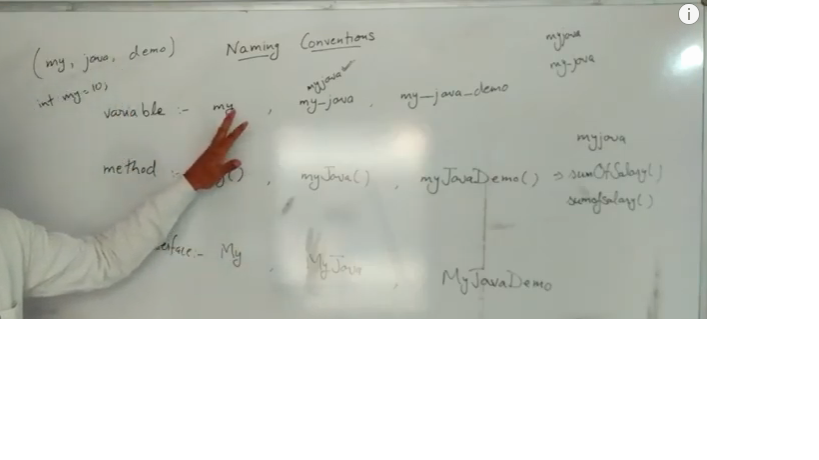 (my, java, demo)
Naming Conventions
myjava
my-java
int my=10;
myjava
variable :- my , my_java , my_java_demo
myjava
method :- () , myJava() , myJavaDemo() => sumOfSalary()
sumofsalary()
:- My , MyJava , MyJavaDemo